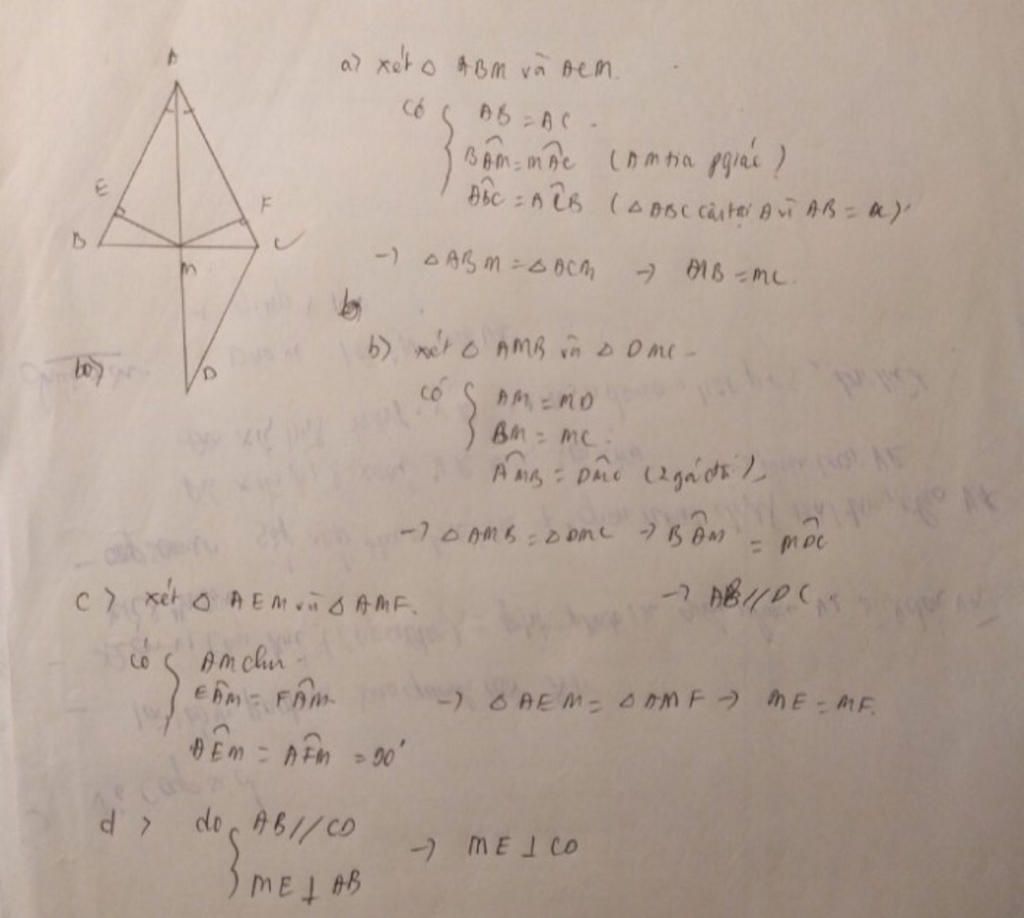 A
E
F
B
C
M
D
a) xét △ ABM và ACM.
có { AB = AC.
BÂM = MÂC (AM tia pgiác)
ABC = ACB (△ ABC cân tại A vì AB = AC)
→ △ABM = △ACM → MB = MC.
b) xét △ AMB và △ DMC
có { AM = MD
BM = MC.
AMB = DMC
→ △AMB = △DMC → BÂM = MDC
→ AB // DC
c) xét △ AEM và △ AMF.
có { AM
EÂM = FÂM → △ AEM = △AMF → ME = MF.
AEM = AFM = 90°
d) do { AB // CD → ME ⊥ CD
ME ⊥ AB